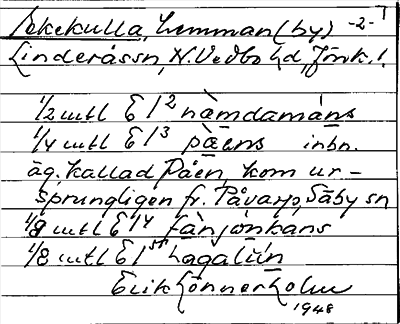 Ekekulla, Lemman (by) -2-
Linderåssn, N. Vedbo hd, Jönk. l.
1/2 mtl E 1/2 nàmdamáns
1/4 mtl E 1/3 pàens inbn.
äg. kallad Påen, kom ur-
sprungligen fr. Påvarp, Säby sn
1/8 mtl E 1/4 fànjónkans
1/8 mtl E 1/5 hagalún
Erik Lönnerholm
1948